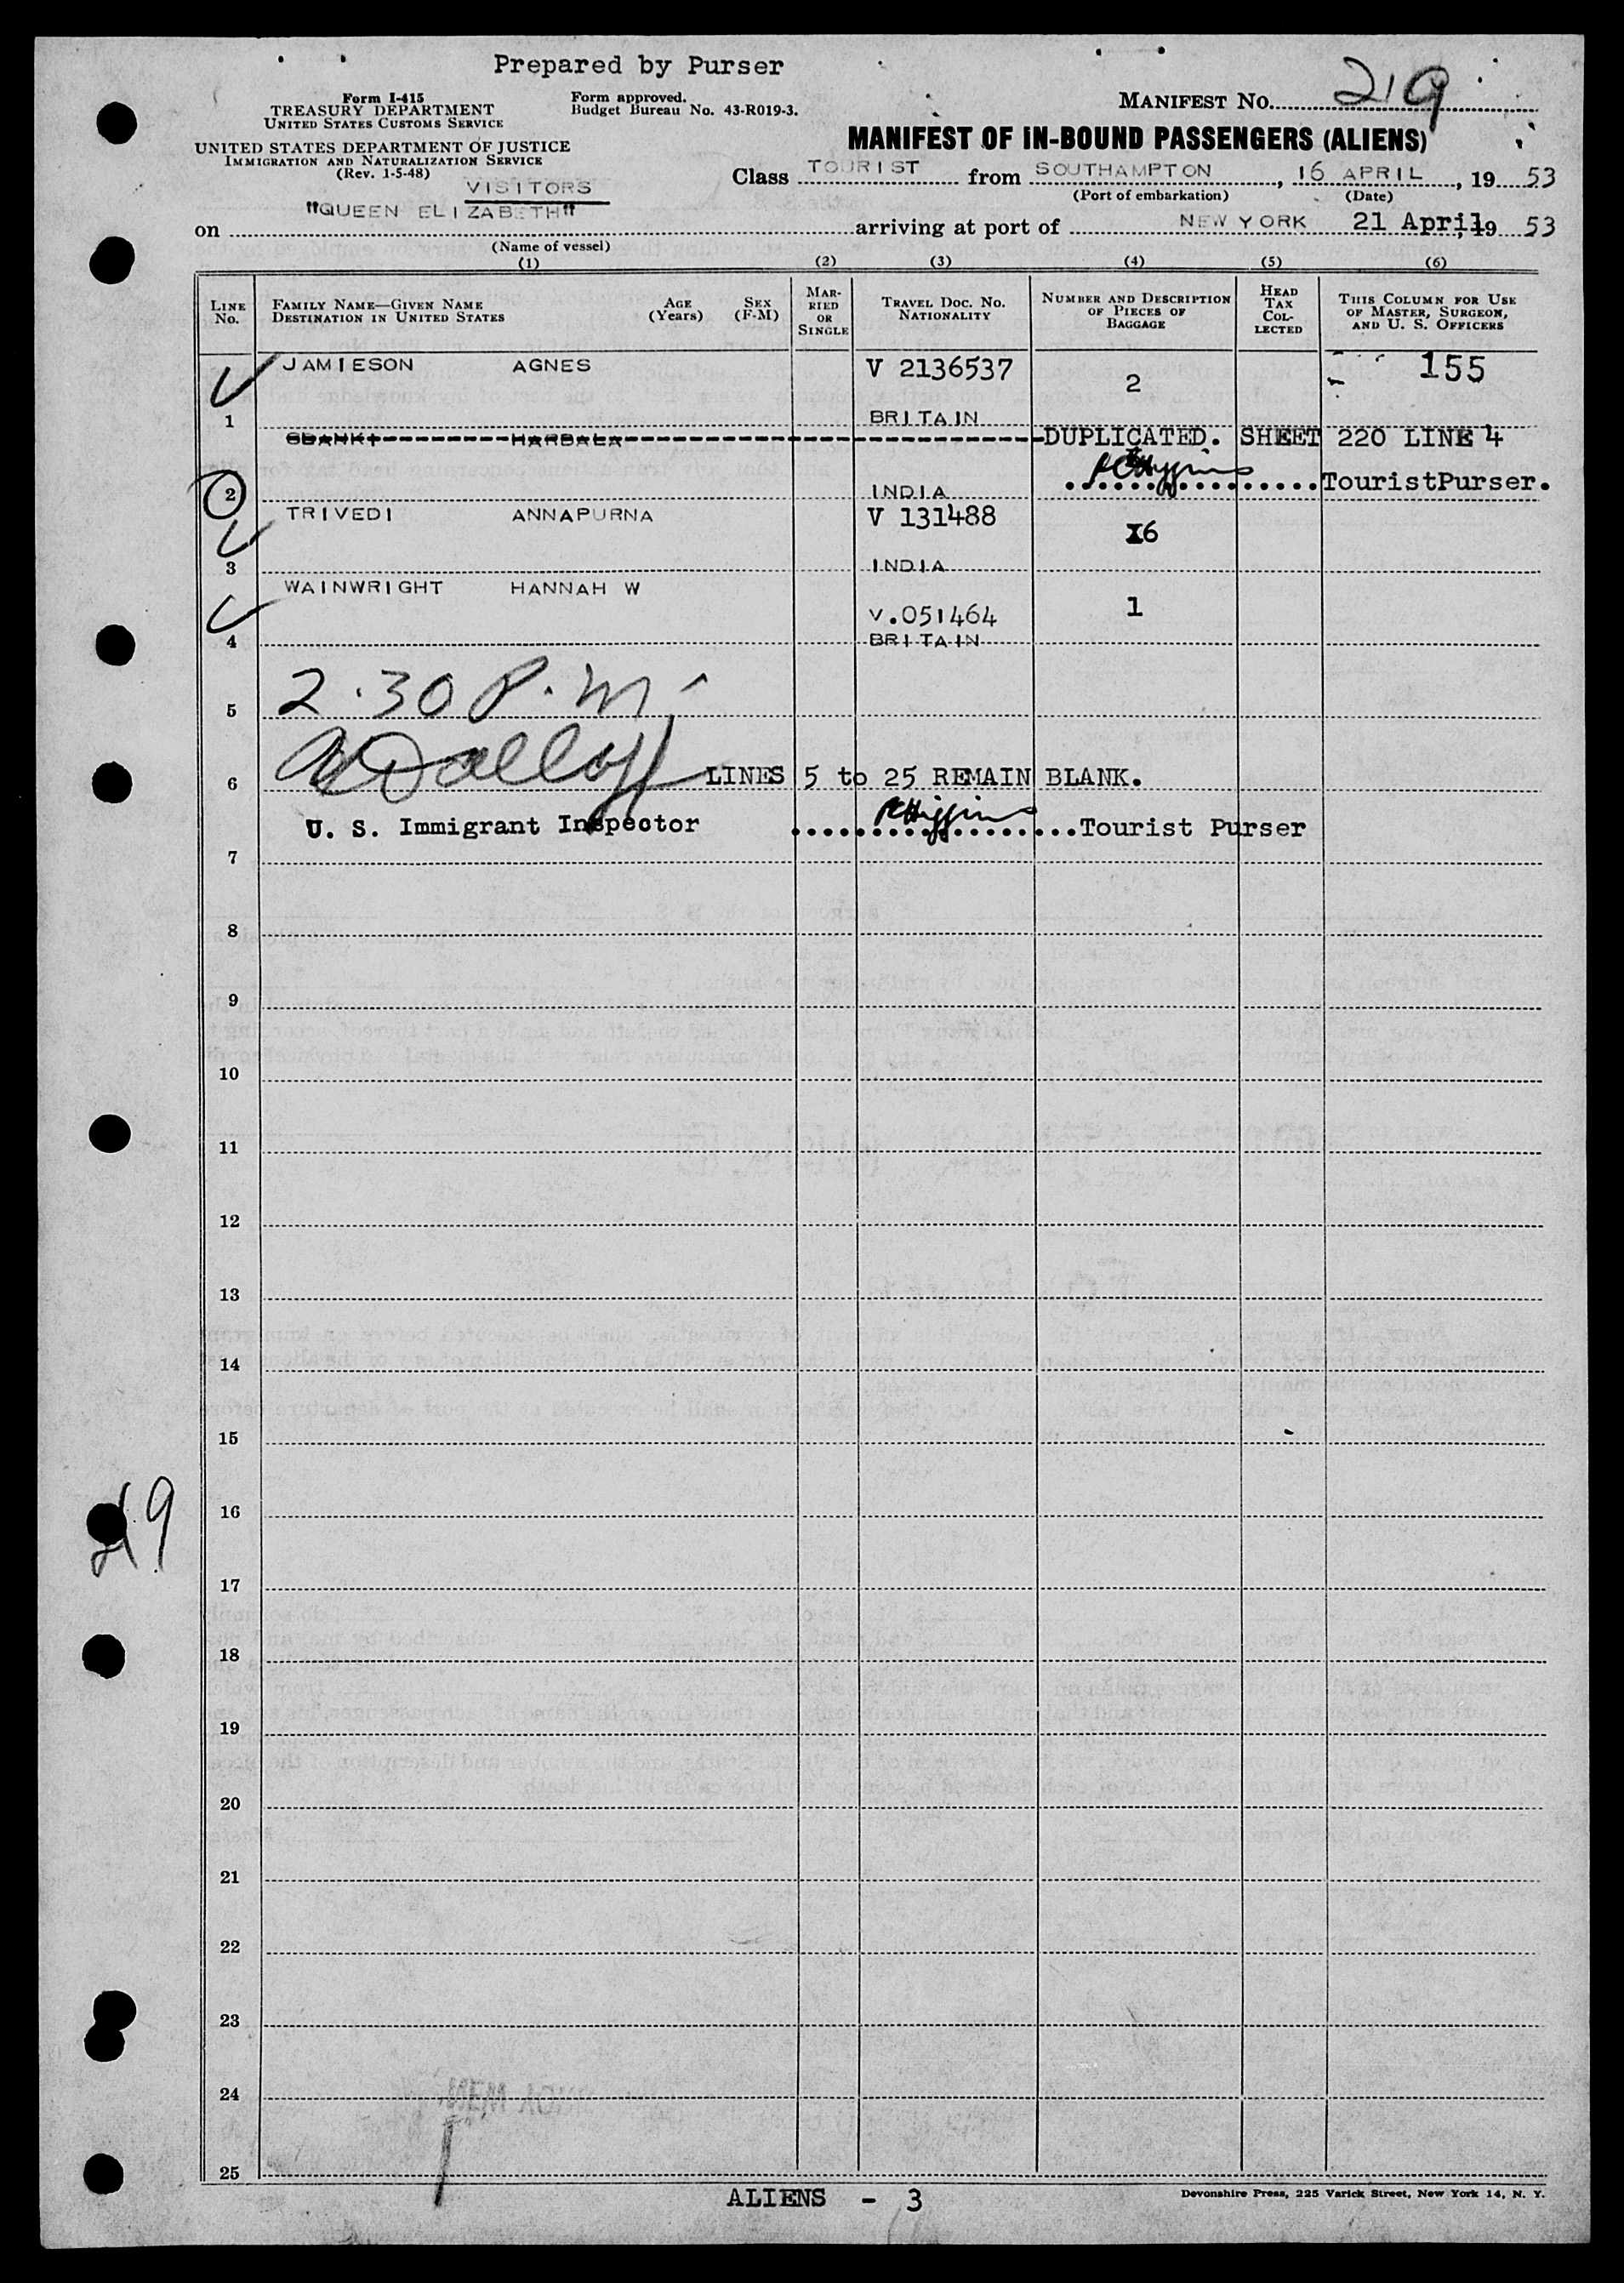 Prepared by Purser
Form I-415
TREASURY DEPARTMENT
UNITED STATES CUSTOMS SERVICE
Form approved.
Budget Bureau No. 43-R019-3.
MANIFEST NO. 219
UNITED STATES DEPARTMENT OF JUSTICE
IMMIGRATION AND NATURALIZATION SERVICE
(Rev. 1-5-48)
MANIFEST OF IN-BOUND PASSENGERS (ALIENS)
VISITORS
Class TOURIST from SOUTHAMPTON, 16 APRIL, 19 53
(Port of embarkation) (Date)
on "QUEEN ELIZABETH" arriving at port of NEW YORK 21 April, 19 53
(Name of vessel)
(1) (2) (3) (4) (5) (6)
LINE No.
FAMILY NAME—GIVEN NAME
DESTINATION IN UNITED STATES
AGE (Years)
SEX (F-M)
MARRIED OR SINGLE
TRAVEL DOC. NO. NATIONALITY
NUMBER AND DESCRIPTION OF PIECES OF BAGGAGE
HEAD TAX COLLECTED
THIS COLUMN FOR USE OF MASTER, SURGEON, AND U. S. OFFICERS
JAMIESON AGNES V 2136537 2 155
1 BRITAIN
HARBALA DUPLICATED. SHEET 220 LINE 4
RCHiggins TouristPurser.
2 INDIA
TRIVEDI ANNAPURNA V 131488 16
3 INDIA
WAINWRIGHT HANNAH W V.051464 1
4 BRITAIN
2.30 P.M.
5
6 LINES 5 to 25 REMAIN BLANK.
U. S. Immigrant Inspector RCHiggins Tourist Purser
7
8
9
10
11
12
13
14
15
16
219
17
18
19
20
21
22
23
24
25
ALIENS - 3
Devonshire Press, 225 Varick Street, New York 14, N. Y.